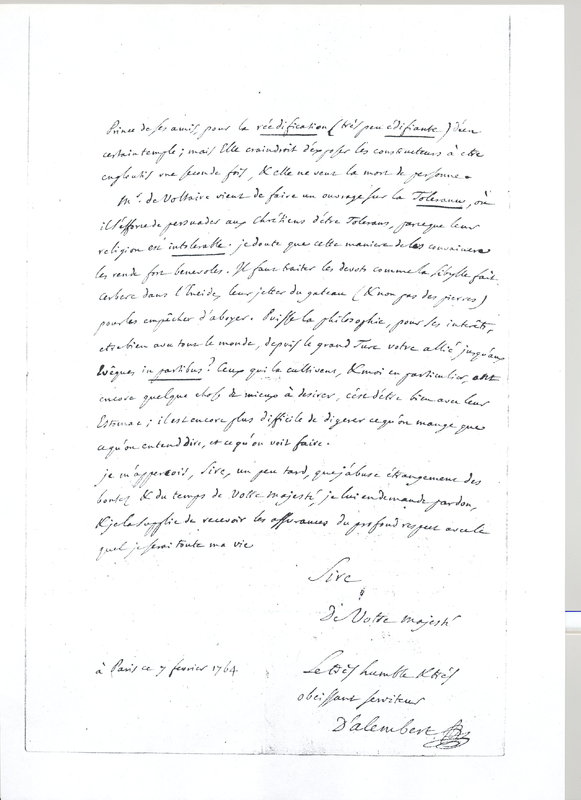 Prince de ses amis, pour la réédification (très peu édifiante) d'un
certain temple; mais Elle craindroit d'exposer les constructeurs à etre
engloutis une seconde fois, & elle ne veut la mort de personne.
Mr. de Voltaire vient de faire un ouvrage sur la Tolerance, où
il s'efforce de persuader aux Chrétiens d'être Tolerans, parceque leur
religion est intolerable. je doute que cette maniere de les convaincre
les rende fort benevoles. Il faut traiter les devots comme la Sibylle fait
cerbere dans l'Eneide, leur jetter du gateau (& non pas des pierres)
pour les empêcher d'aboyer. Puisse la philosophie, pour ses interêts,
etre bien avec tout le monde, depuis le grand Turc votre allié jusqu'aux
Evêques in partibus! Ceux qui la cultivent, & moi en particulier, ont
encore quelque chose de mieux à desirer, c'est d'être bien avec leur
Estomac; il est encore plus difficile de digerer ce qu'on mange que
ce qu'on entend dire, et ce qu'on voit faire.
je m'apperçois, Sire, un peu tard, que j'abuse étrangement des
bontés & du temps de Votre majesté, je lui en demande pardon,
& je la supplie de recevoir les assurances du profond respect avec le
quel je serai toute ma vie
Sire
De Votre majesté
à Paris ce 7 fevrier 1764
Le très humble & très
obeissant serviteur
D'alembert